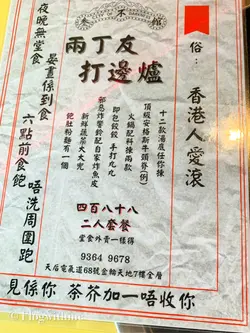 不 館
俗：香港人愛滾
兩丁友
打邊爐
十二款湯底任你揀
頂級安格斯牛頸脊（例）
火鍋配料揀兩款
即包餃餃 手打丸丸
邪惡炸響鈴配自家炸魚皮
新鮮蔬菜大大兜
飽肚粉麵有一個
四百八十八
二人套餐
堂食外賣一樣得
9364 9678
天后電氣道68號金輪天地7樓全層
夜晚無堂食
晏晝係到食
六點前食飽
唔洗周圍跑
見係你 茶芥加一唔收你